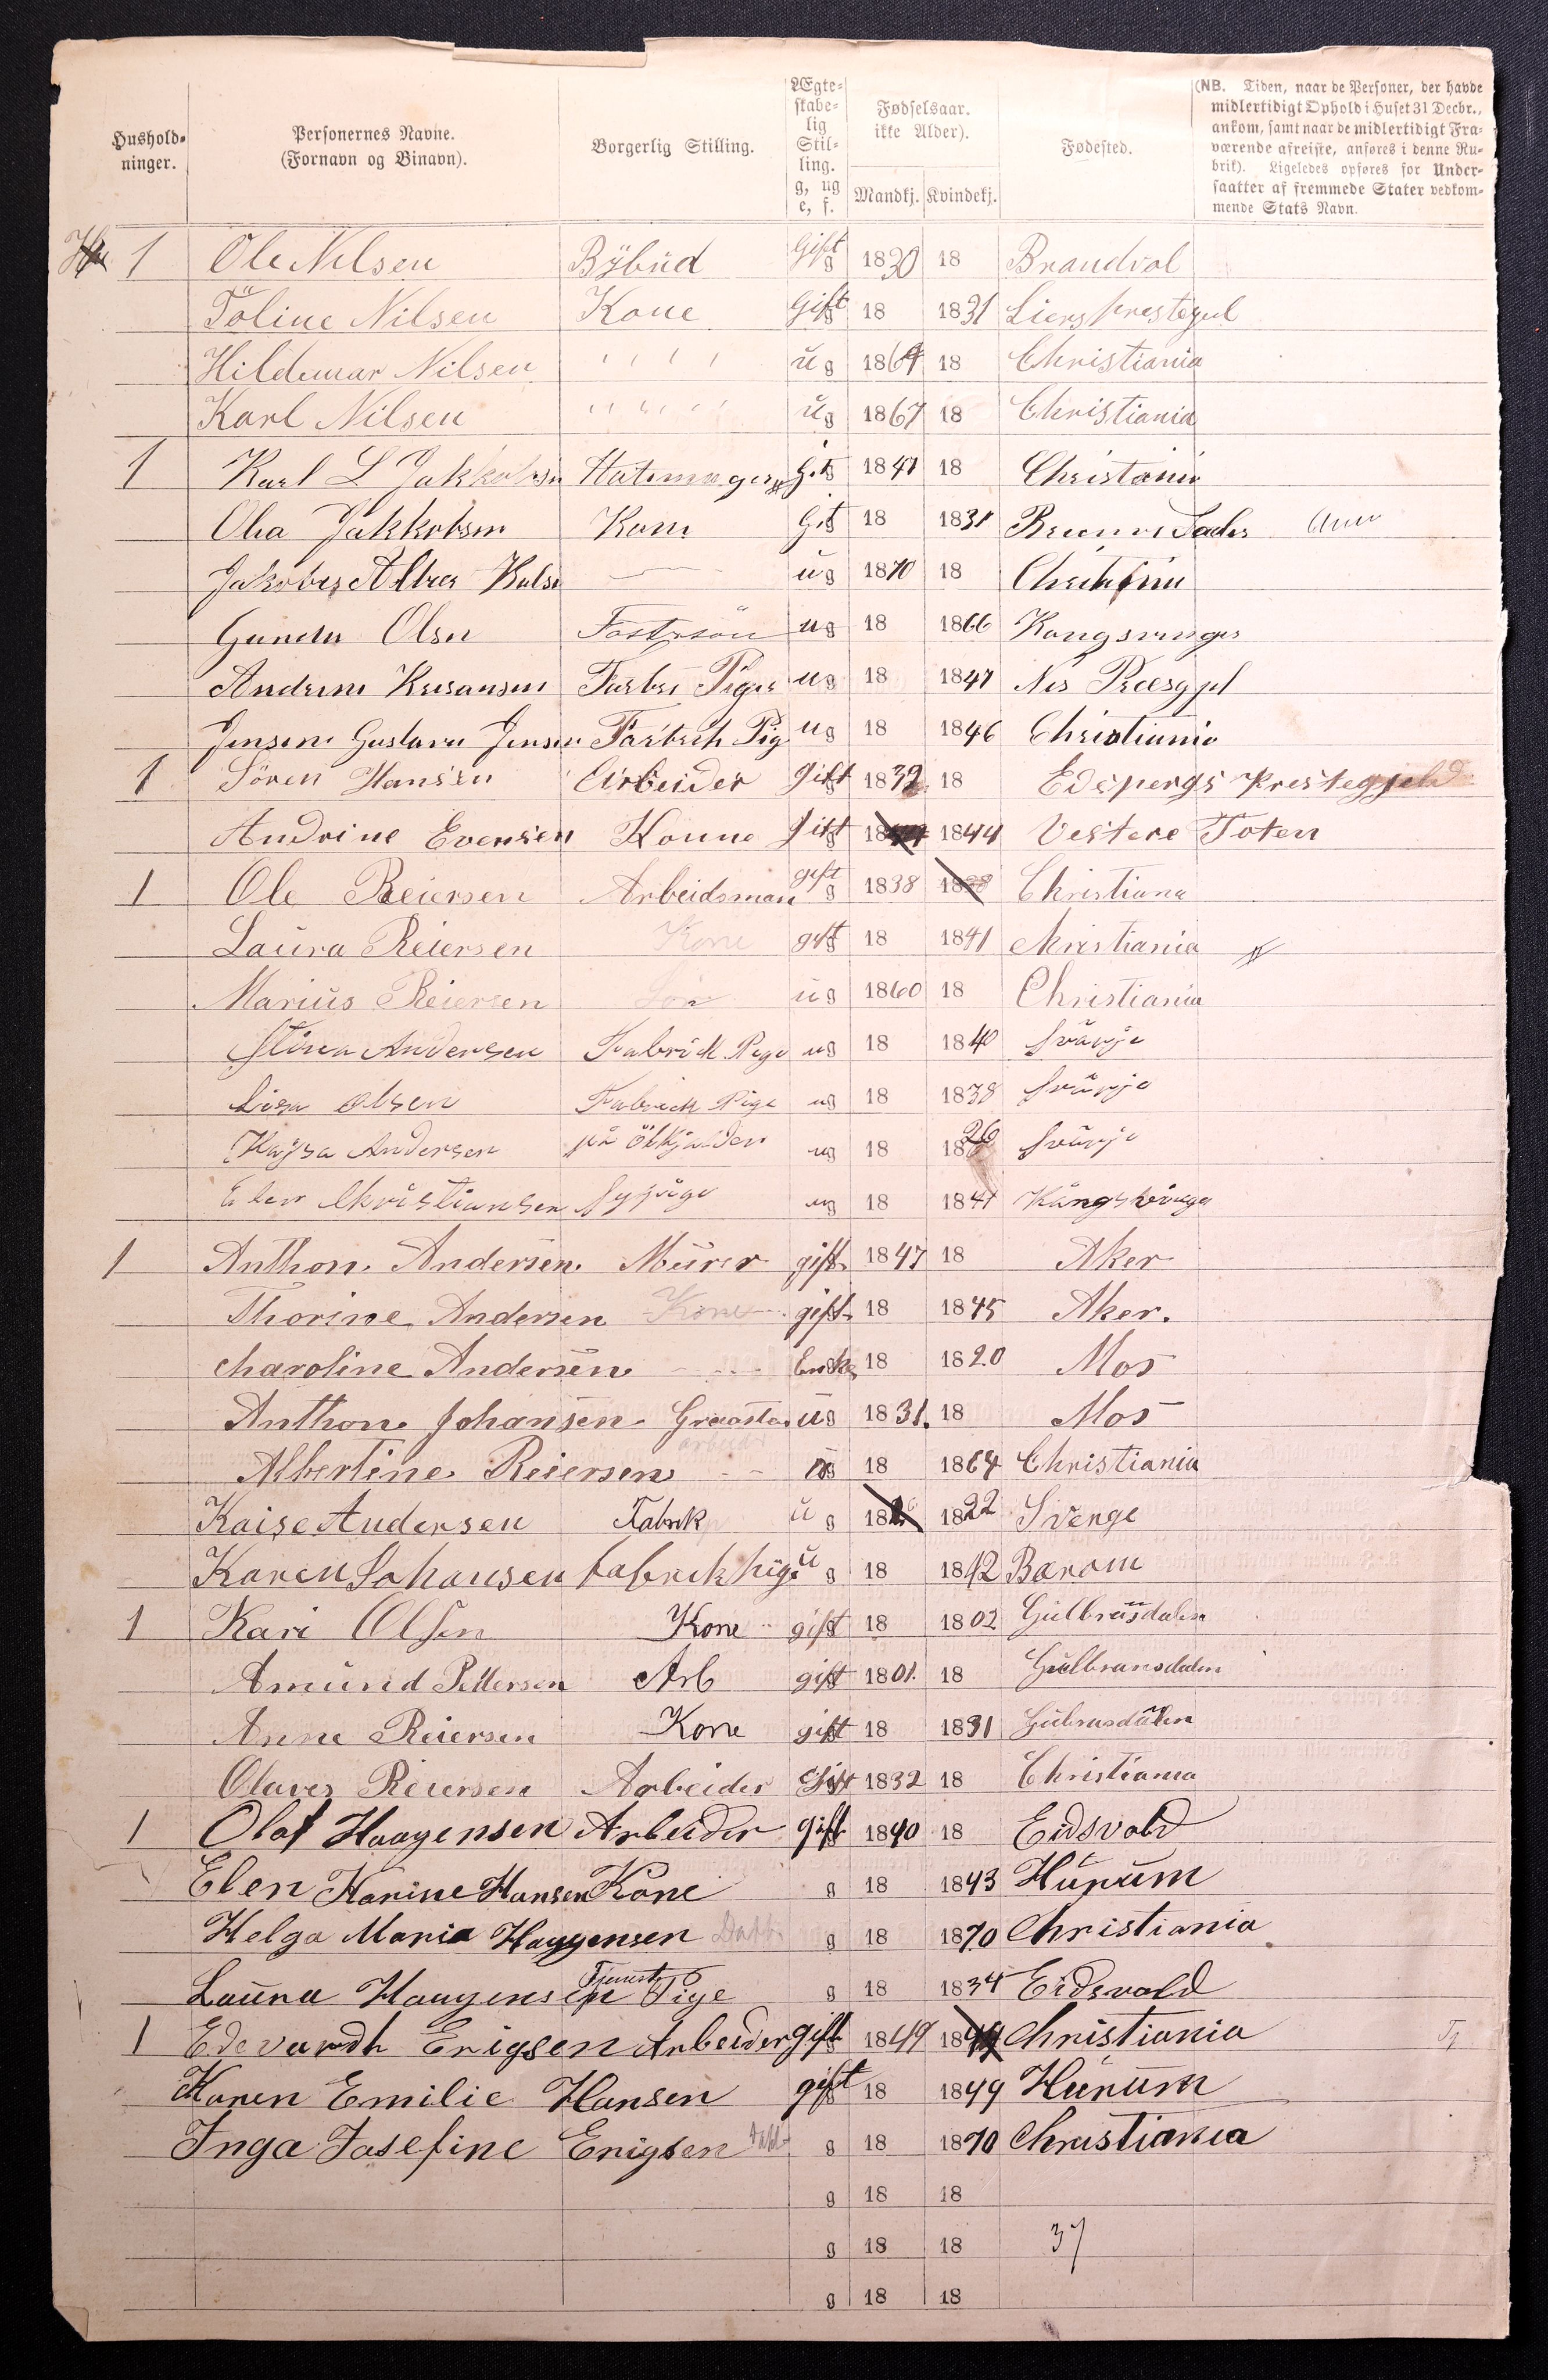 Hushold-
ninger.
Personernes Navne.
(Fornavn og Binavn).
Borgerlig Stilling.
Ægte-
skabe-
lig
Stil-
ling.
g, ug
e, f.
Fødselsaar.
ikke Alder).
Mandkj. Kvindekj.
Fødested.
(NB. Tiden, naar de Personer, der havde
midlertidigt Ophold i Huset 31 Decbr.,
ankom, samt naar de midlertidigt Fra-
værende afreiste, anføres i denne Ru-
brik). Ligeledes opføres for Under-
saatter af fremmede Stater vedkom-
mende Stats Navn.
1 Ole Nilsen Bÿbud Gift g 1830 18 Brandvol
Töline Nilsen Kone Gift g 18 1831 Liers prestegel
Hildemar Nilsen " " " " ug 1864 18 Christiania
Karl Nilsen " " " " ug 1867 18 Christiania
1 Karl L Jakkobsen Hatemager git 1841 18 Christania
Olia Jakkobsen Kone git 18 1831
ug 1870 18
Olsen ug 18 1866 Kongsvinger
ug 18 1847 Nes
Jensen ug 18 1846 Christiania
1 Sören Hansen Arbeider gift 1832 18 Edspergs Prestegjeld
Andrine Evensen Konne gift 18 1844 Vestere Toten
1 Ole Reiersen Arbeidsman gift g 1838 18 Christiana
Laura Reiersen Kone gift 18 1841 christiania
Marius Reiersen Sön ug 1860 18 Christiania
Stina Andersen Fabrick Pige ug 18 1840 Svärje
Lisa olsen Fabrick Pige ug 18 1838 Svärje
Kajsa Andersen ug 18 1826 Svärje
Elen Christiansen Sypige ug 18 1841 Kångsvinge
1 Anthon Andersen Murer gift 1847 18 Aker
Thorine Andersen Kone gift 18 1845 Aker.
Charoline Andersen Enke 18 1820 Mos
Anthon Johansen Graasten ug 1831. 18 Mos
arbeider
Albertine Reiersen ug 18 1864 Christiania
Kaise Andersen Fabrik u g 18 1822 Svenge
Karen Johansen fabrikpige u g 18 1842 Barom
1 Kari Olsen Kone gift 18 1802 Gulbrasdalen
Amund Pettersen Arb gift 1801. 18 Gulbransdalen
Anne Reiersen Kone gift 18 1831 Gubrusdalen
Olaves Reiersen Arbeider Gift 1832 18 Christiania
1 Olaf Haagensen Arbeider gift 1840 18 Eidsvold
Elen Karine Hansen Kone g 18 1843 Hurum
Helga Maria Haagensen Datt. g 18 1870 Christiania
Laura Haagensen Tjenst Pige g 18 1834 Eidsvold
1 Edevardh Erigsen Arbeider gift 1849 18 Christiania
Karen Emilie Hansen gift 18 1849 Hurum
Inga Josefine Erigsen Datt g 18 1870 Christiania
g 18 18
g 18 18 37
g 18 18